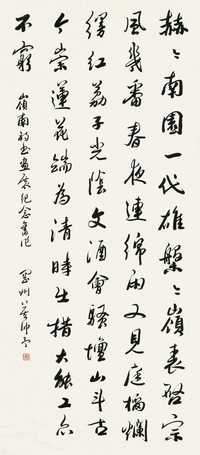 赫〻南園一代雄盤〻嶺表啓宗
風幾番春夜連綿雨又見庭爛
縵紅荔子光陰文酒會騷壇山斗古
今崇蓮花端為清時出措大能工亦
不窮
嶺南詩書畫展紀念舊作
岡州莫仲予